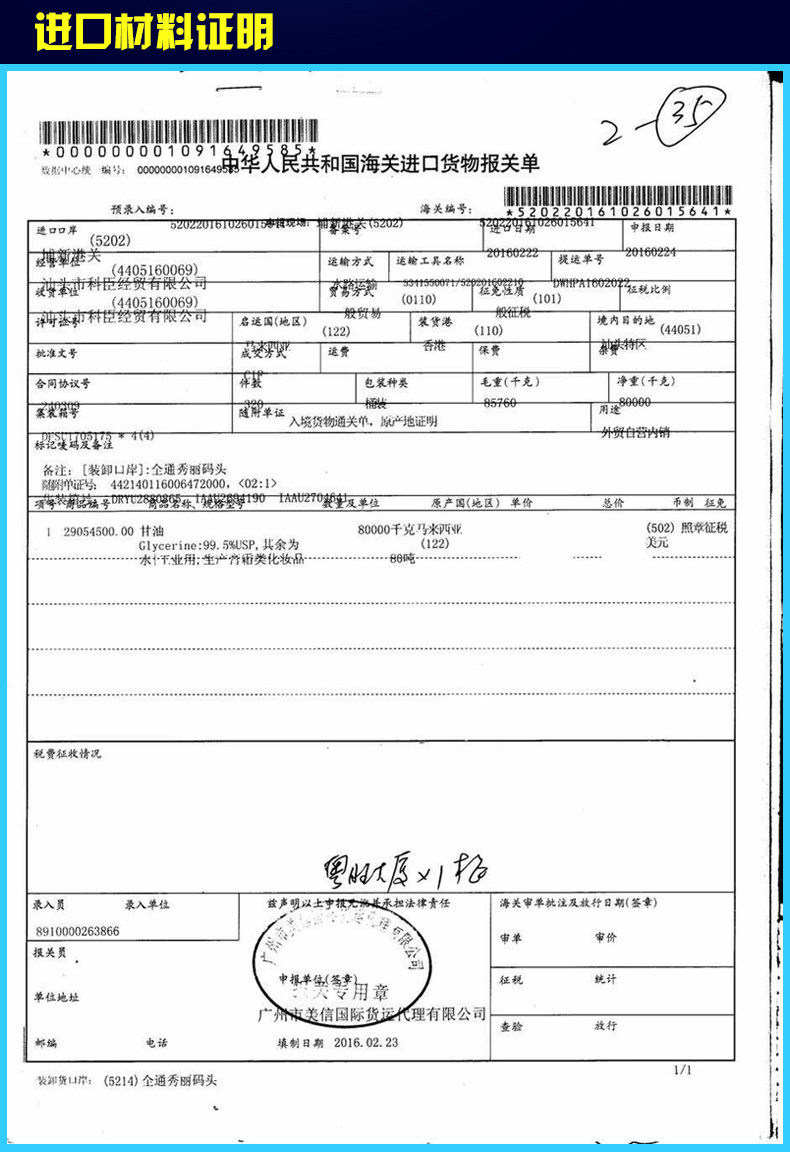 进口材料证明
2-35
*000000001091649585*
中华人民共和国海关进口货物报关单
数据中心统一编号: 000000001091649585
*520220161026015641*
预录入编号:
申报现场: 埔新港关(5202)
海关编号:
520220161026015641
进口口岸 (5202)
埔新港关
备案号
进口日期
20160222
申报日期
20160224
经营单位 (4405160069)
汕头市科臣经贸有限公司
运输方式
水路运输
运输工具名称
5341550071/520201602210
提运单号
DWHPA1602022
收货单位 (4405160069)
汕头市科臣经贸有限公司
贸易方式 (0110)
一般贸易
征免性质 (101)
一般征税
征税比例
许可证号
启运国(地区) (122)
马来西亚
装货港 (110)
香港
境内目的地 (44051)
汕头特区
批准文号
成交方式
CIF
运费
保费
杂费
合同协议号
240309
件数
320
包装种类
桶装
毛重(千克)
85760
净重(千克)
80000
集装箱号
DFSC1705175 * 4(4)
随附单证
入境货物通关单, 原产地证明
用途
外贸自营内销
标记唛码及备注
备注: [装卸口岸]:全通秀丽码头
随附单证号: 442140116006472000, <02:1>
集装箱号: DRYU2880865 IAAU2694190 IAAU2704641
项号 商品编号 商品名称、规格型号 数量及单位 原产国(地区) 单价 总价 币制 征免
1 29054500.00 甘油 80000千克马来西亚 (502) 照章征税
Glycerine:99.5%USP,其余为 (122) 美元
水;工业用;生产香霜类化妆品 80吨
税费征收情况
录入员 录入单位
兹声明以上申报无讹并承担法律责任
海关审单批注及放行日期(签章)
8910000263866
审单 审价
报关员
申报单位(签章)
报关专用章
征税 统计
单位地址
广州市美信国际货运代理有限公司
查验 放行
邮编 电话 填制日期 2016.02.23
1/1
装卸货口岸: (5214)全通秀丽码头